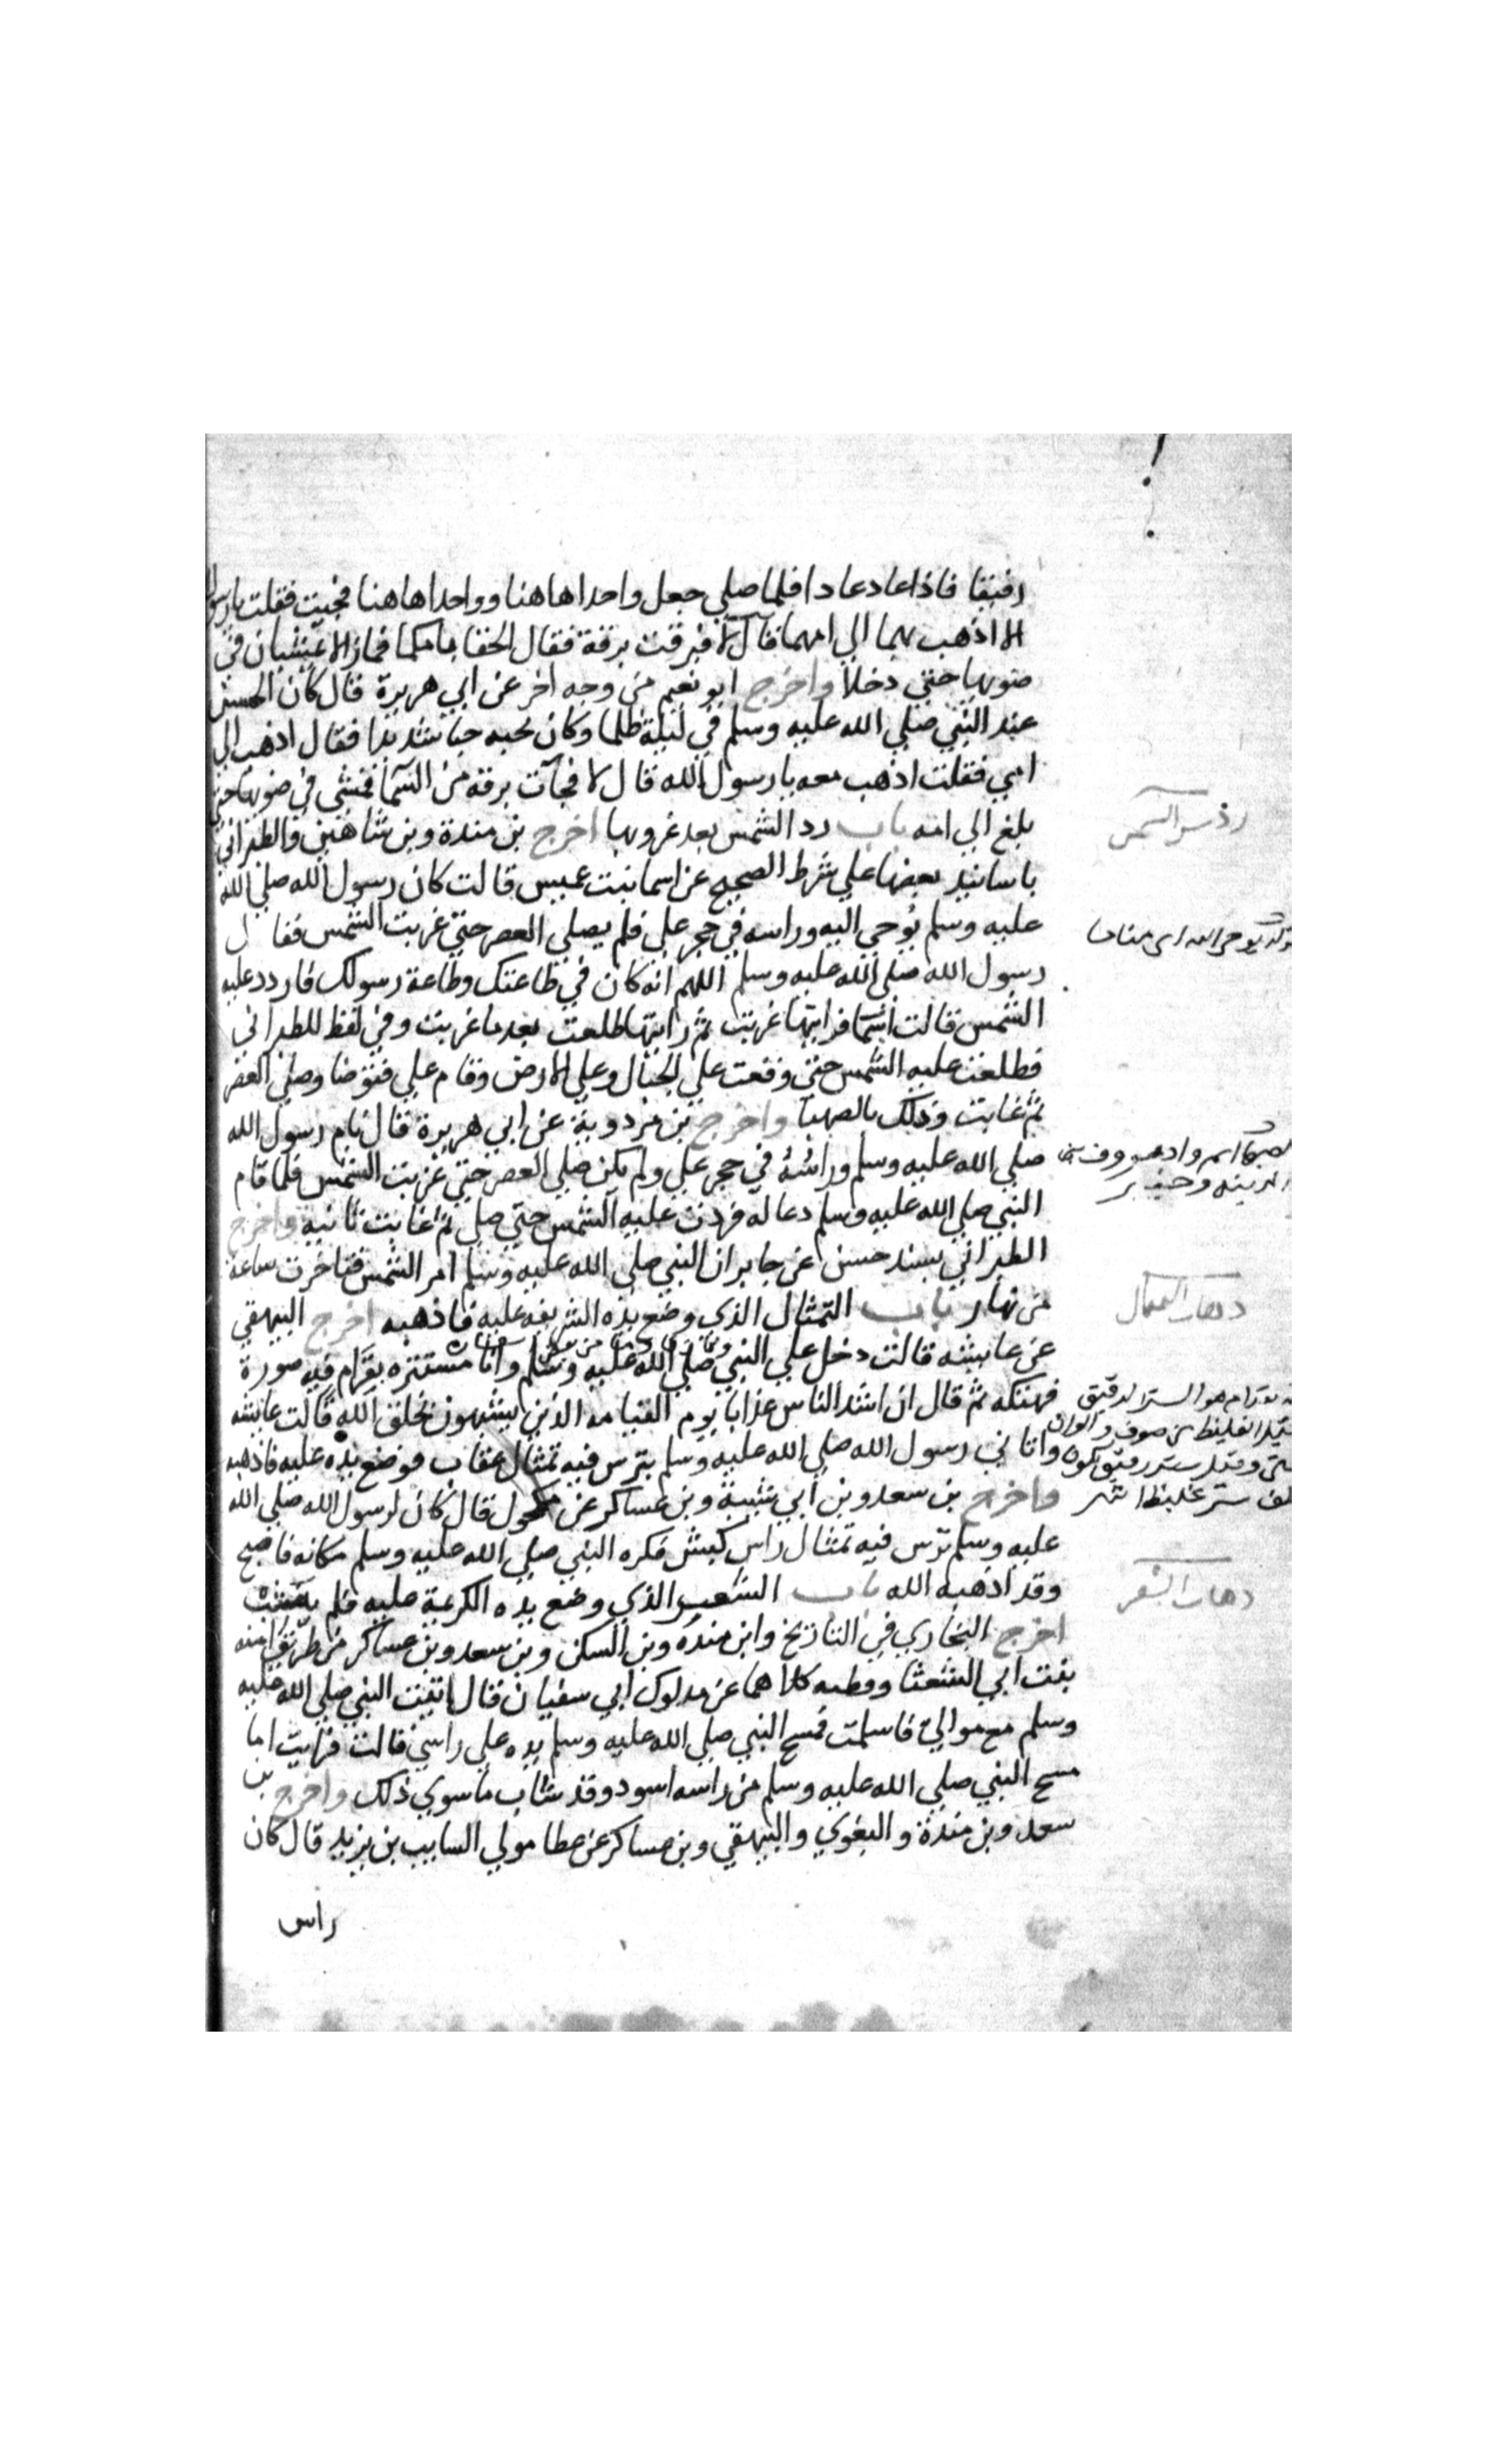 رفيقا فاذا عاد عادا فلما صلي جعل واحدا هاهنا وواحدا هاهنا فجيت فقلت يا رسول
الا اذهب بهما الي امهما قال لا فبرقت برقة فقال الحقا بامكما فما زالا يمشيان في
ضوبها حتي دخلا واخرج ابو نعيم من وجه اخر عن ابي هريرة قال كان الحسن
عند النبي صلي الله عليه وسلم في ليلة ظلما وكان يحبه حبا شديدا فقال اذهب الي
امي فقلت اذهب معه يا رسول الله قال لا فجآت برقة من السما فمشي في ضوبها حتي
بلغ الي امه باب رد الشمس بعد غروبها اخرج بن مندة وبن شاهين والطبراني
رد شمس السمس
باسانيد بعضها علي شرط الصحيح عن اسما بنت عميس قالت كان رسول الله صلي الله
عليه وسلم يُوحي اليه وراسه في حجر علي فلم يصلي العصر حتي غربت الشمس فقال
قوله يوحي اليه اي مناما
رسول الله صلي الله عليه وسلم اللهم انه كان في طاعتك وطاعة رسولك فاردد عليه
الشمس قالت اسما فرايتها غربت ثم رايتها طلعت بعد ما غربت وفي لفظ للطبراني
فطلعت عليه الشمس حتي وقعت علي الجبال وعلي الارض وقام علي فتوضا وصلي العصر
ثم غابت وذلك بالصهبا واخرج بن مردوية عن ابي هريرة قال نام رسول الله
صلي الله عليه وسلم وراسُهُ في حجر علي ولم يكن صلي العصر حتي غربت الشمس فلما قام
الصهبا اسم واد معروف بين
المدينه وخيبر
النبي صلي الله عليه وسلم دعا له فردت عليه الشمس حتي صلي ثم غابت ثانية واخرج
الطبراني بسند حسن عن جابر ان النبي صلي الله عليه وسلم امر الشمس فتاخرت ساعة
من نهار باب التمثال الذي وضع يده الشريفه عليه فاذهبه اخرج البيهقي
دهاب التمثال
عن عايشه قالت دخل علي النبي صلي الله عليه وسلم وانا مستتره بقرام فيه صورة
فهتكه ثم قال ان اشد الناس عذابا يوم القيامه الذين يشبهون بخلق الله قالت عايشه
بقرام هو الستر الرقيق
وقيل الغليظ من صوف والوان
وقيل ستر رقيق يكون
خلف ستر غليظ انتهي
واتاني رسول الله صلي الله عليه وسلم بترس فيه تمثال عقاب فوضع يده عليه فاذهبه
واخرج بن سعد وبن ابي شيبة وبن عساكر عن مكحول قال كان لرسول الله صلي الله
عليه وسلم ترس فيه تمثال راس كبش فكره النبي صلي الله عليه وسلم مكانه فاصبح
وقد اذهبه الله باب الشعر الذي وضع يده الكريمة عليه فلم يشب
دهاب الشعر
اخرج البخاري في التاريخ وابن منده وبن السكن وبن سعد وبن عساكر من طريق امنه
بنت ابي الشعثا وقطبه كلاهما عن مدلوك ابي سفيان قال اتيت النبي صلي الله عليه
وسلم مع موالي فاسلمت فمسح النبي صلي الله عليه وسلم يده علي راسي قالت فرايت ما
مسح النبي صلي الله عليه وسلم من راسه اسود وقد شاب ما سوي ذلك واخرج بن
سعد وبن مندة والبغوي والبيهقي وبن عساكر عن عطا مولي السايب بن يزيد قال كان
راس